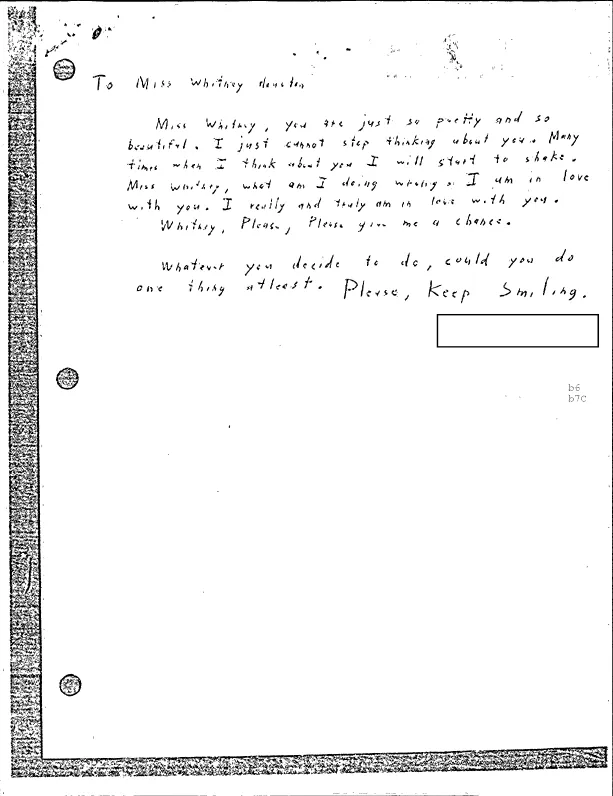 To Miss Whitney Houston
Miss Whitney, you are just so pretty and so
beautiful. I just cannot stop thinking about you. Many
times when I think about you I will start to shake.
Miss Whitney, what am I doing wrong. I am in love
with you. I really and truly am in love with you.
Whitney, Please, Please give me a chance.
Whatever you decide to do, could you do
one thing atleast. Please, Keep Smiling.
b6
b7C